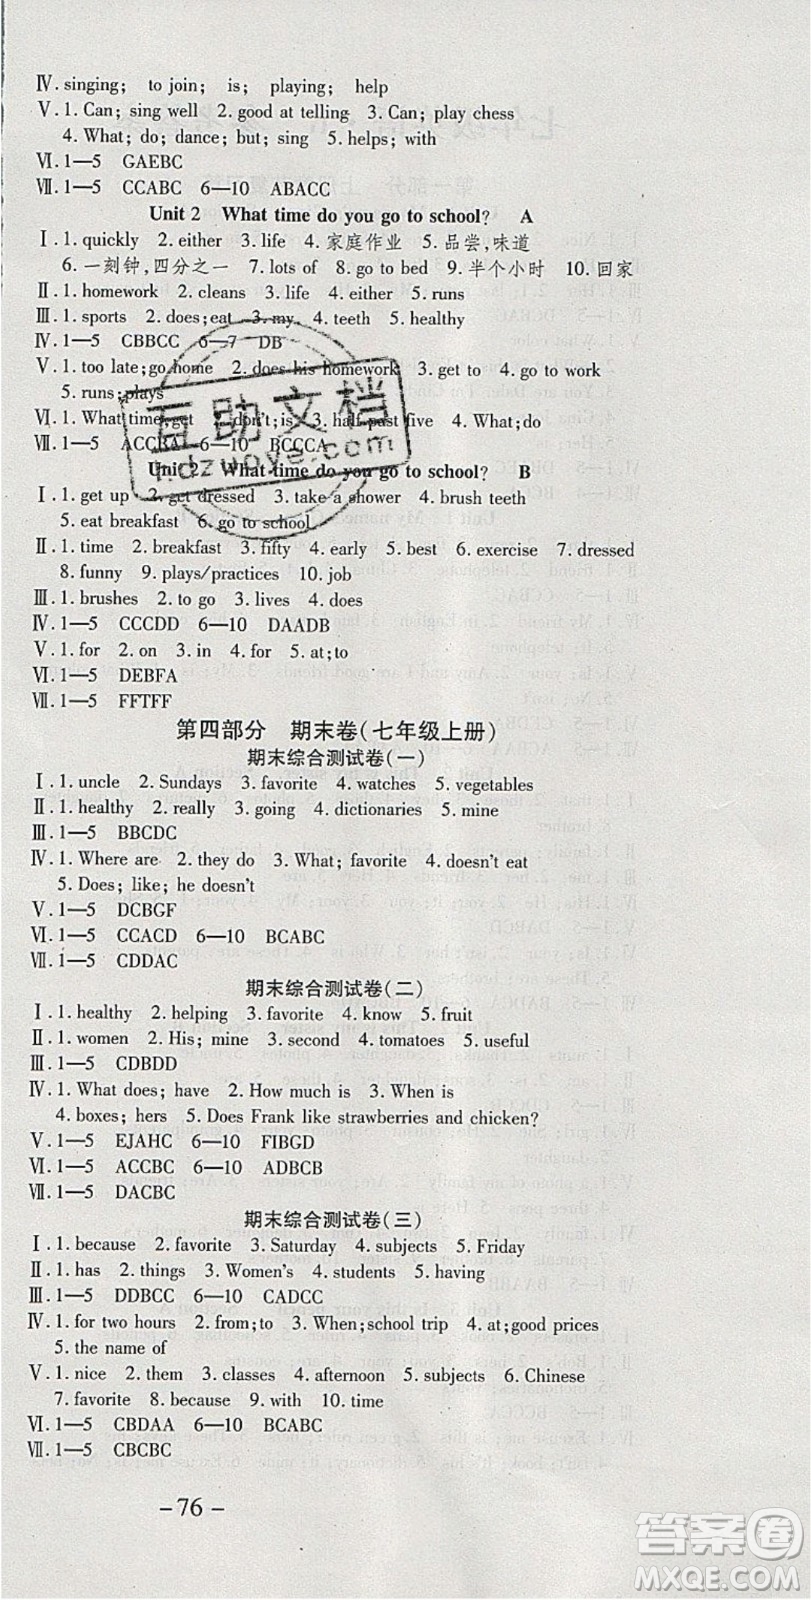 Ⅳ. singing; to join; is; playing; help
Ⅴ. 1. Can; sing well 2. good at telling 3. Can; play chess
4. What; do; dance; but; sing 5. helps; with
Ⅵ. 1—5 GAEBC
Ⅶ. 1—5 CCABC 6—10 ABACC
Unit 2 What time do you go to school? A
Ⅰ. 1. quickly 2. either 3. life 4. 家庭作业 5. 品尝,味道
6. 一刻钟,四分之一 7. lots of 8. go to bed 9. 半个小时 10. 回家
Ⅱ. 1. homework 2. cleans 3. life 4. either 5. runs
Ⅲ. 1. sports 2. does; eat 3. my 4. teeth 5. healthy
Ⅳ. 1—5 CBBCC 6—7 DB
Ⅴ. 1. too late; go home 2. does his homework 3. get to 4. go to work
5. runs; plays
Ⅵ. 1. What time; get 2. don't; is 3. half past five 4. What; do
Ⅶ. 1—5 ACCBA 6—10 BCCCA
Unit 2 What time do you go to school? B
Ⅰ. 1. get up 2. get dressed 3. take a shower 4. brush teeth
5. eat breakfast 6. go to school
Ⅱ. 1. time 2. breakfast 3. fifty 4. early 5. best 6. exercise 7. dressed
8. funny 9. plays/practices 10. job
Ⅲ. 1. brushes 2. to go 3. lives 4. does
Ⅳ. 1—5 CCCDD 6—10 DAADB
Ⅴ. 1. for 2. on 3. in 4. for 5. at; to
Ⅵ. 1—5 DEBFA
Ⅶ. 1—5 FFTFF
第四部分 期末卷(七年级上册)
期末综合测试卷(一)
Ⅰ. 1. uncle 2. Sundays 3. favorite 4. watches 5. vegetables
Ⅱ. 1. healthy 2. really 3. going 4. dictionaries 5. menu
Ⅲ. 1—5 BBCDC
Ⅳ. 1. Where are 2. they do 3. What; favorite 4. doesn't eat
5. Does; like; he doesn't
Ⅴ. 1—5 DCBGF
Ⅵ. 1—5 CCACD 6—10 BCABC
Ⅶ. 1—5 CDDAC
期末综合测试卷(二)
Ⅰ. 1. healthy 2. helping 3. favorite 4. know 5. fruit
Ⅱ. 1. women 2. His; mine 3. second 4. tomatoes 5. useful
Ⅲ. 1—5 CDBDD
Ⅳ. 1. What does; have 2. How much is 3. When is
4. boxes; hers 5. Does Frank like strawberries and chicken?
Ⅴ. 1—5 EJAHC 6—10 FIBGD
Ⅵ. 1—5 ACCBC 6—10 ADBCB
Ⅶ. 1—5 DACBC
期末综合测试卷(三)
Ⅰ. 1. because 2. favorite 3. Saturday 4. subjects 5. Friday
Ⅱ. 1. has 2. things 3. Women's 4. students 5. having
Ⅲ. 1—5 DDBCC 6—10 CADCC
Ⅳ. 1. for two hours 2. from; to 3. When; school trip 4. at; good prices
5. the name of
Ⅴ. 1. nice 2. them 3. classes 4. afternoon 5. subjects 6. Chinese
7. favorite 8. because 9. with 10. time
Ⅵ. 1—5 CBDAA 6—10 BCABC
Ⅶ. 1—5 CBCBC
- 76 -
互助文档
答案圈
MXQE.COM